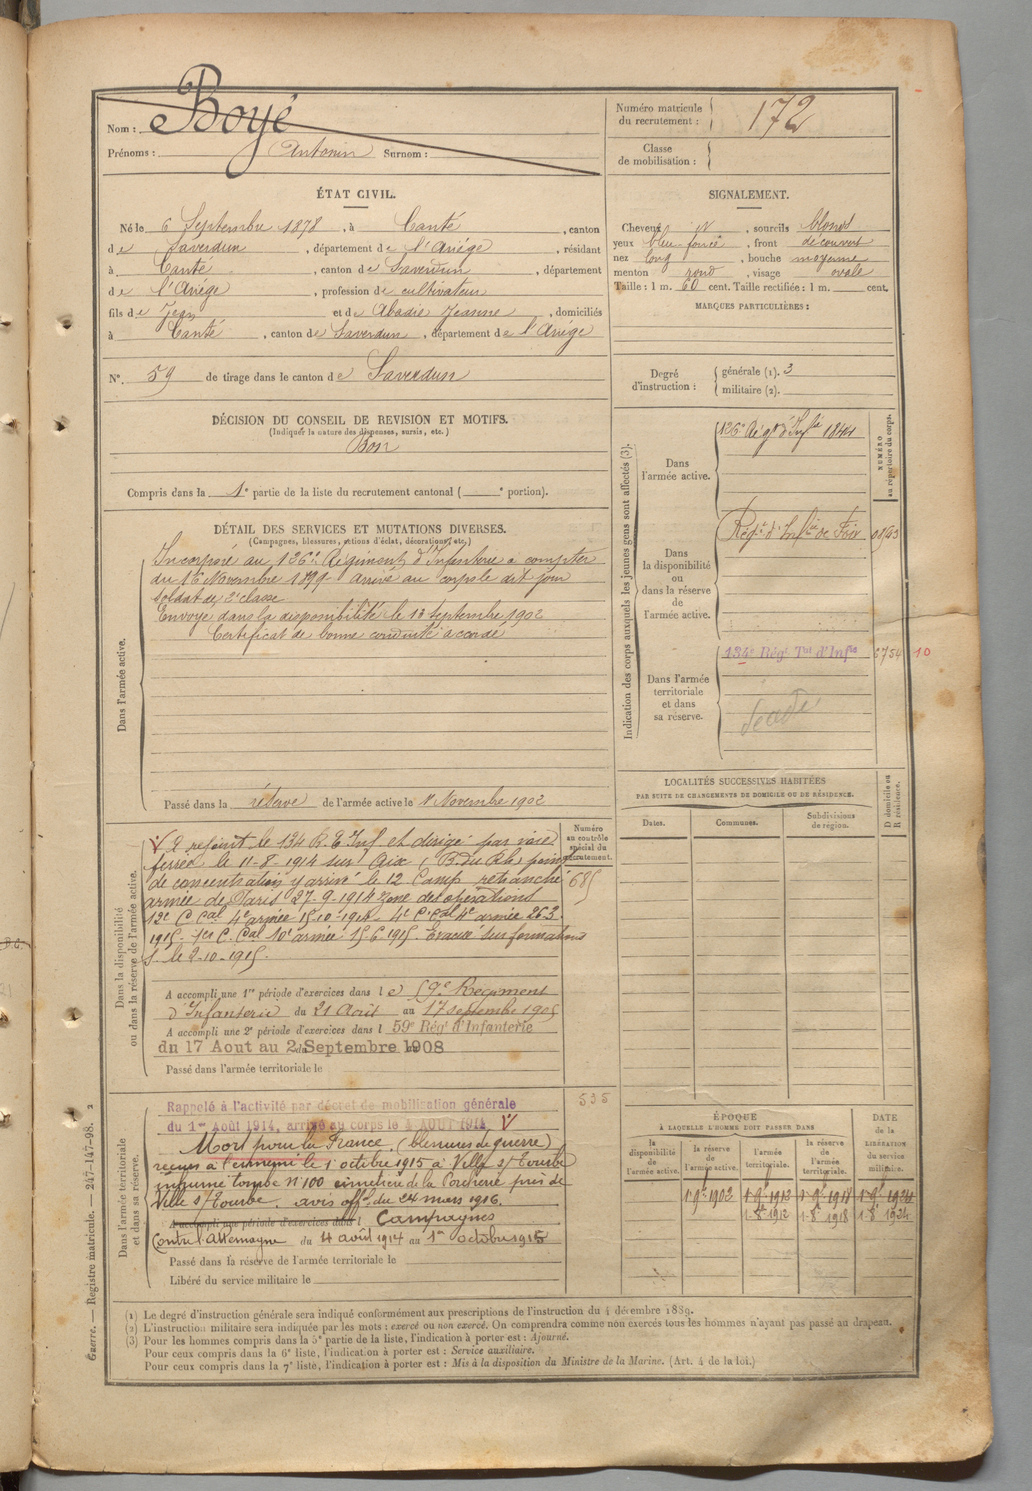 Nom : Boyé
Prénoms : Antonin Surnom :
Numéro matricule du recrutement : 172
Classe de mobilisation :
ÉTAT CIVIL.
Né le 6 Septembre 1878, à Canté, canton
de Saverdun, département de l'Ariége, résidant
à Canté, canton de Saverdun, département
de l'Ariége, profession de cultivateur
fils de Jean et de Abadie Jeanne, domiciliés
à Canté, canton de Saverdun, département de l'Ariége
N°. 59 de tirage dans le canton de Saverdun
SIGNALEMENT.
Cheveux, sourcils blonds
yeux bleu foncé, front découvert
nez long, bouche moyenne
menton rond, visage ovale
Taille : 1 m. 60 cent. Taille rectifiée : 1 m. cent.
MARQUES PARTICULIÈRES :
Degré d'instruction : générale (1). 3
militaire (2).
DÉCISION DU CONSEIL DE REVISION ET MOTIFS.
(Indiquer la nature des dispenses, sursis, etc.)
Bon
Compris dans la 1e partie de la liste du recrutement cantonal ( e portion).
DÉTAIL DES SERVICES ET MUTATIONS DIVERSES.
(Campagnes, blessures, actions d'éclat, décorations, etc.)
Dans l'armée active.
Incorporé au 136e Régiment d'Infanterie à compter
du 16 Novembre 1899 arrivé au corps le dit jour
soldat de 2e classe
Envoyé dans la disponibilité le 13 Septembre 1902
Certificat de bonne conduite accordé
Passé dans la réserve de l'armée active le 1r Novembre 1902
Indication des corps auxquels les jeunes gens sont affectés (3).
NUMÉRO au répertoire du corps.
Dans l'armée active.
136e Régt d'Infie
Dans la disponibilité ou dans la réserve de l'armée active.
Régt d'Infie de Foix
Dans l'armée territoriale et dans sa réserve.
134e Régt Tal d'Infie 6754 10
LOCALITÉS SUCCESSIVES HABITÉES
PAR SUITE DE CHANGEMENTS DE DOMICILE OU DE RÉSIDENCE.
Dates. Communes. Subdivisions de région. D domicile ou R résidence.
Dans la disponibilité ou dans la réserve de l'armée active.
Numéro au contrôle spécial du recrutement.
685
A rejoint le 134 R. T. Inf et dirigé par voie
ferrée le 11-8-1914 sur Aix (B. du Rh) point
de concentration y arrivé le 12 Camp retranché
armée de Paris 27-9-1914 zone des opérations
12e C. Cal 4e armée 15-10-1914 - 4e C. Cal 4e armée 26.3.
1915. 1er C. Cal 10e armée 15-6-1915. Evacué sur formation
S. le 2-10-1915.
A accompli une 1re période d'exercices dans le 59e Régiment
d'Infanterie du 21 Août au 17 septembre 1905
A accompli une 2e période d'exercices dans l 59e Rég' d'Infanterie
du 17 Aout au 2 Septembre 1908
Passé dans l'armée territoriale le
Dans l'armée territoriale et dans sa réserve.
535
Rappelé à l'activité par décret de mobilisation générale
du 1er Août 1914, arrivé au corps le 4 AOUT 1914
Mort pour la France. (blessures de guerre)
reçues à l'ennemi le 1r octobre 1915 à Ville s/ Tourbe
inhumé tombe N° 100 cimetière de la près de
Ville s/ Tourbe. avis offel du 24 mars 1916.
A accompli une période d'exercices dans l Campagnes
Contre l'Allemagne du 4 août 1914 au 1er octobre 1915
Passé dans la réserve de l'armée territoriale le
Libéré du service militaire le
ÉPOQUE
À LAQUELLE L'HOMME DOIT PASSER DANS
DATE de la LIBÉRATION du service militaire.
la disponibilité de l'armée active. la réserve de l'armée active. l'armée territoriale. la réserve de l'armée territoriale.
1r 9bre 1902 1r 9bre 1912 1r 9bre 1918 1r 9bre 1924
1-8bre 1912 1-8bre 1918 1-8bre 1924
(1) Le degré d'instruction générale sera indiqué conformément aux prescriptions de l'instruction du 4 décembre 1889.
(2) L'instruction militaire sera indiquée par les mots : exercé ou non exercé. On comprendra comme non exercés tous les hommes n'ayant pas passé au drapeau.
(3) Pour les hommes compris dans la 5e partie de la liste, l'indication à porter est : Ajourné.
Pour ceux compris dans la 6e liste, l'indication à porter est : Service auxiliaire.
Pour ceux compris dans la 7e liste, l'indication à porter est : Mis à la disposition du Ministre de la Marine. (Art. 4 de la loi.)
Guerre. — Registre matricule. — 247-147-98. 2